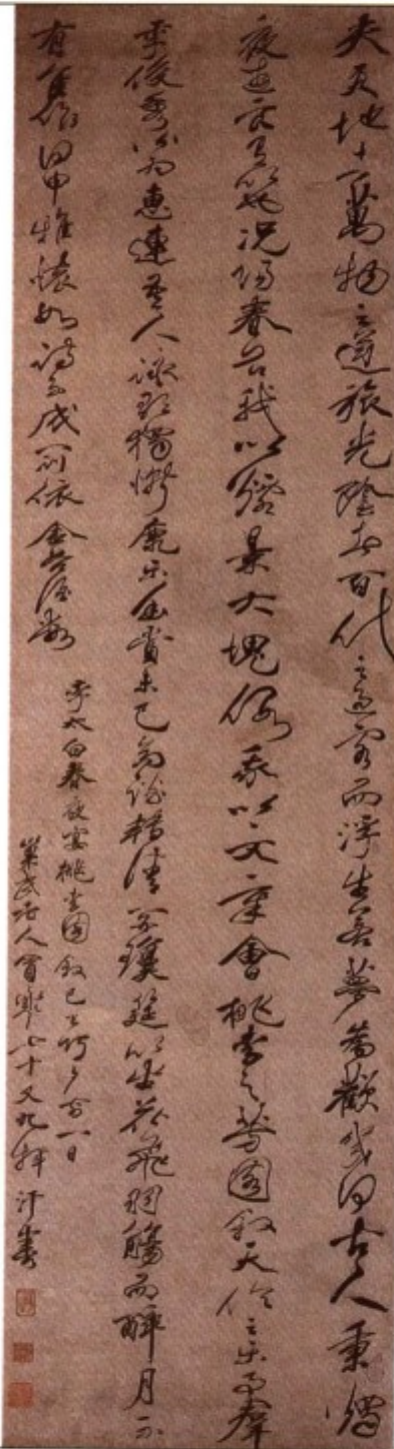 夫天地者萬物之逆旅光陰者百代之過客而浮生若夢為歡幾何古人秉燭
夜遊良有以也況陽春召我以煙景大塊假我以文章會桃李之芳園敘天倫之樂事群
季俊秀皆為惠連吾人詠歌獨慚康樂幽賞未已高談轉清開瓊筵以坐花飛羽觴而醉月不
有佳作何申雅懷如詩不成罰依金谷酒數
李太白春夜宴桃李園敘己巳一日
巢民老人冒襄七十又九揮汗書